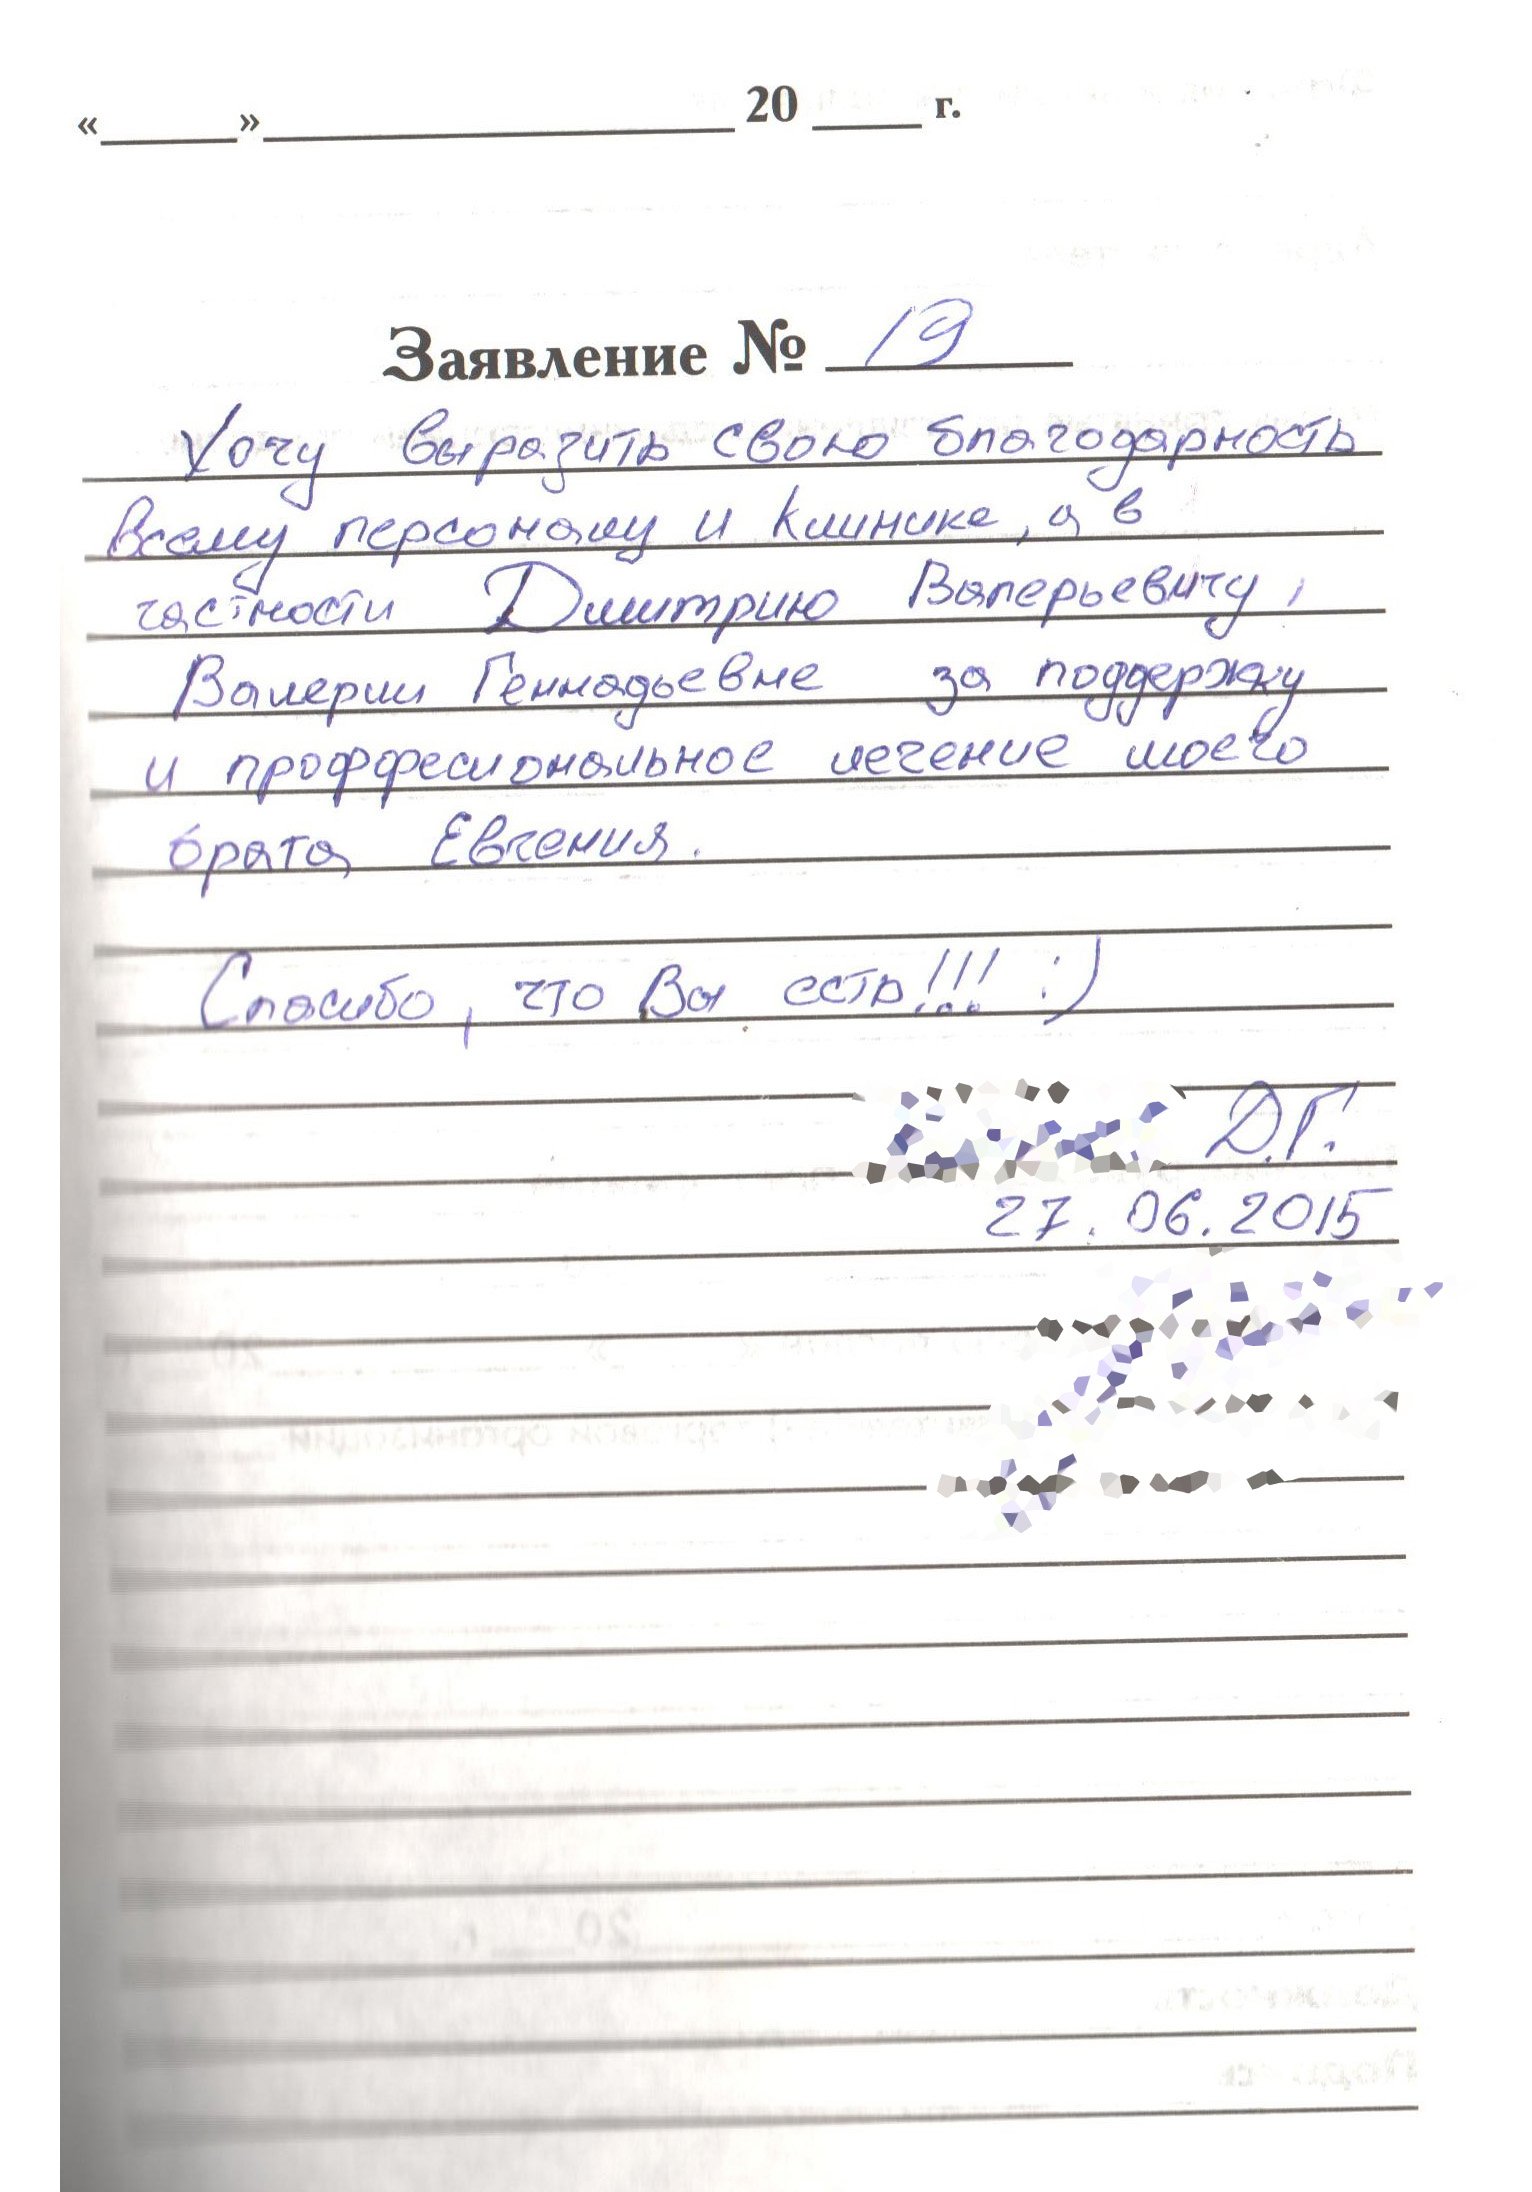 «______»____________________ 20 _____ г.
Заявление № 19
Хочу выразить свою благодарность
всему персоналу и клинике, а в
частности Дмитрию Валерьевичу,
Валерии Геннадьевне за поддержку
и проффесиональное лечение моего
брата Евгения.
Спасибо, что Вы есть!!! :)
Д.Г.
27.06.2015